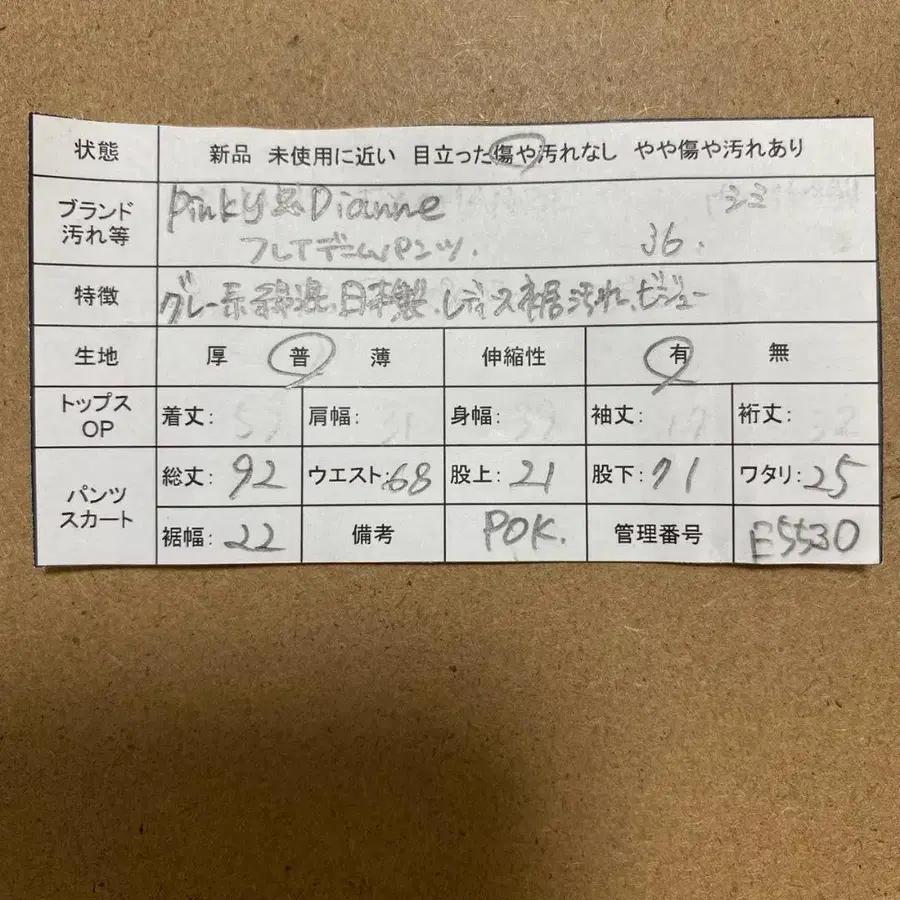 状態 新品 未使用に近い 目立った傷や汚れなし やや傷や汚れあり
ブランド 汚れ等 Pinky & Dianne シミ
フレアデニムパンツ. 36.
特徴 グレー系 綿混、日本製、レディス 裾汚れ、ビジュー
生地 厚 普 薄 伸縮性 有 無
トップス OP 着丈: 肩幅: 31 身幅: 39 袖丈: 17 裄丈: 32
パンツ スカート 総丈: 92 ウエスト: 68 股上: 21 股下: 71 ワタリ: 25
裾幅: 22 備考 POK. 管理番号 E5530